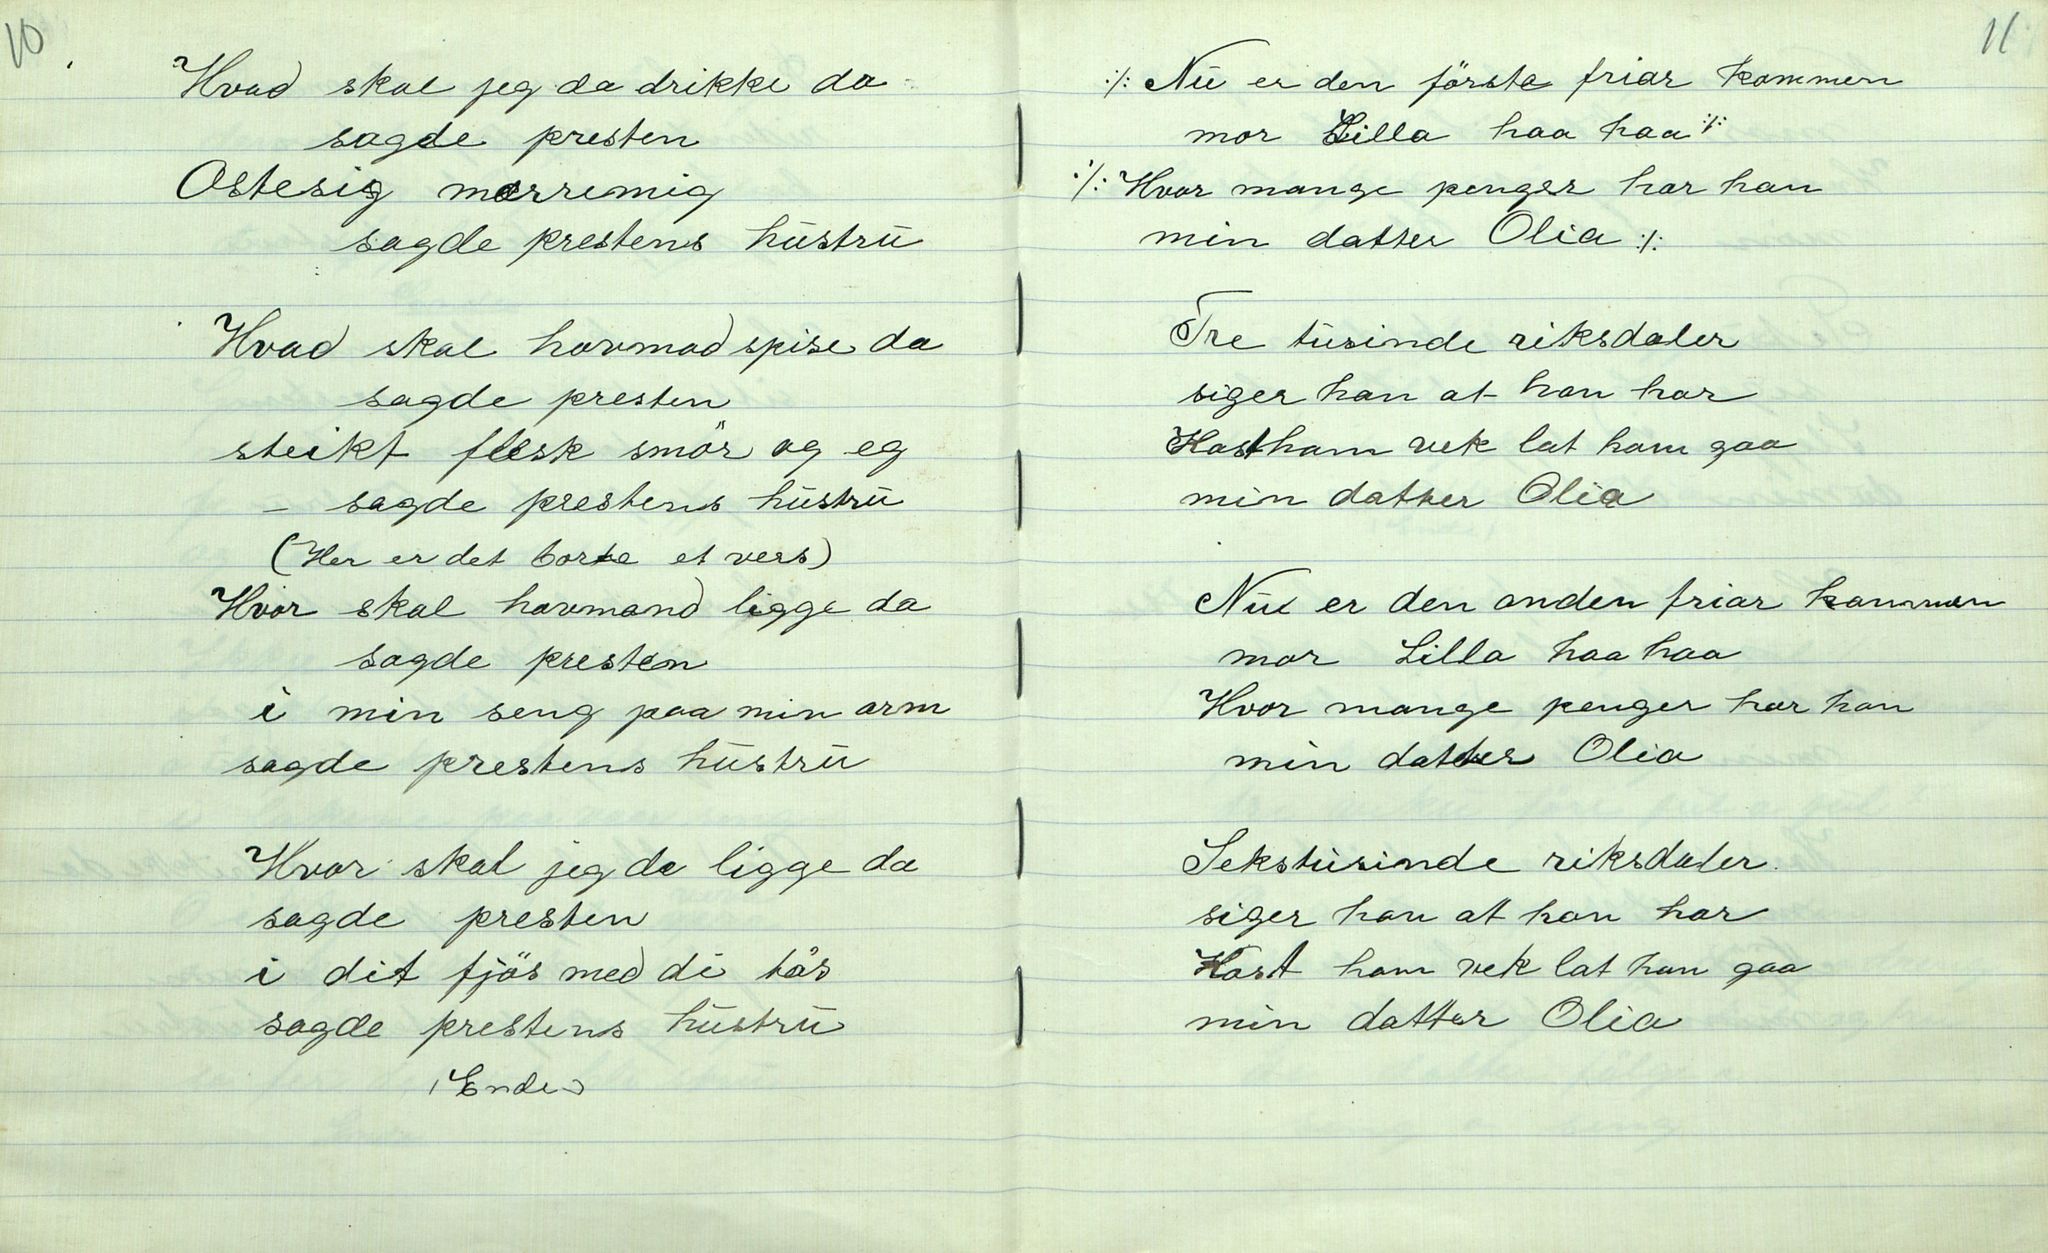 10
Hvad skal jeg da drikke da
sagde presten
Ostesig mærremig
sagde prestens hustru
Hvad skal havmad spise da
sagde presten
steikt flesk smör og eg
– sagde prestens hustru
(Her er det borte et vers)
Hvor skal havmand ligge da
sagde presten
i min seng paa min arm
sagde prestens hustru
Hvor skal jeg da ligge da
sagde presten
i dit fjös med di tös
sagde prestens hustru
(Ende)
11
:/: Nu er den förste friar kommen
mor Lilla haa haa :/:
:/: Hvor mange penger har han
min datter Olia :/:
Tre tusinde riksdaler
siger han at han har
Kast ham vek lat ham gaa
min datter Olia
Nu er den anden friar kommen
mor Lilla haa haa
Hvor mange penger har han
min datter Olia
Sekstusinde riksdaler.
siger han at han har
Kast ham vek lat han gaa
min datter Olia